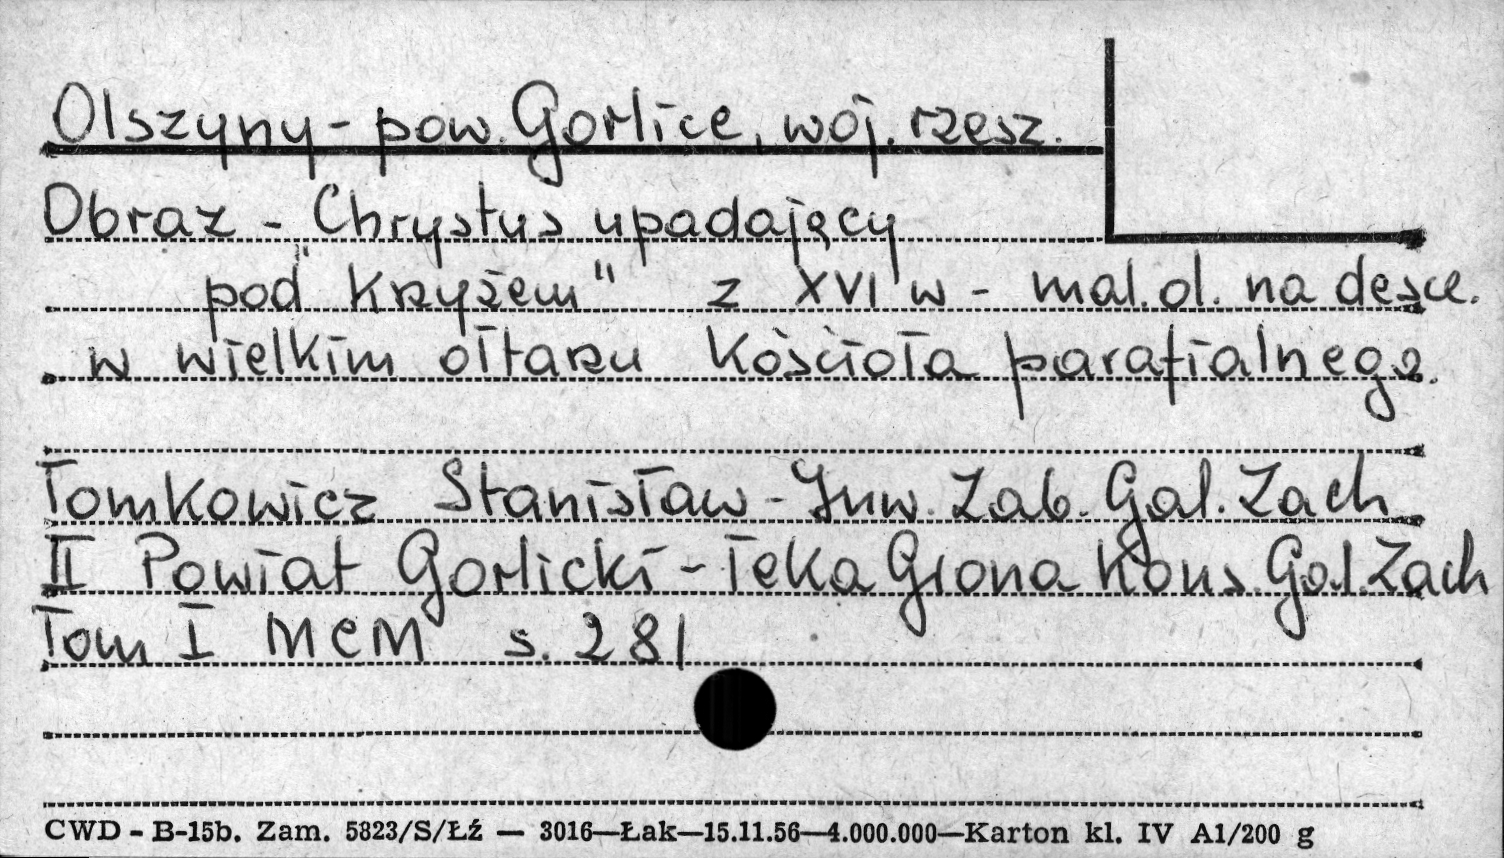 Olszyny - pow. Gorlice, woj. rzesz.
Obraz - „Chrystus upadający
pod Krzyżem" z XVI w - mal. ol. na desce.
w wielkim ołtarzu Kościoła parafialnego.
Tomkowicz Stanisław - Inw. Zab. Gal. Zach
II Powiat Gorlicki - Teka Grona Kons. Gal. Zach
Tom I MCM s. 281
CWD - B-15b. Zam. 5823/S/Łź — 3016—Łak—15.11.56—4.000.000—Karton kl. IV A1/200 g